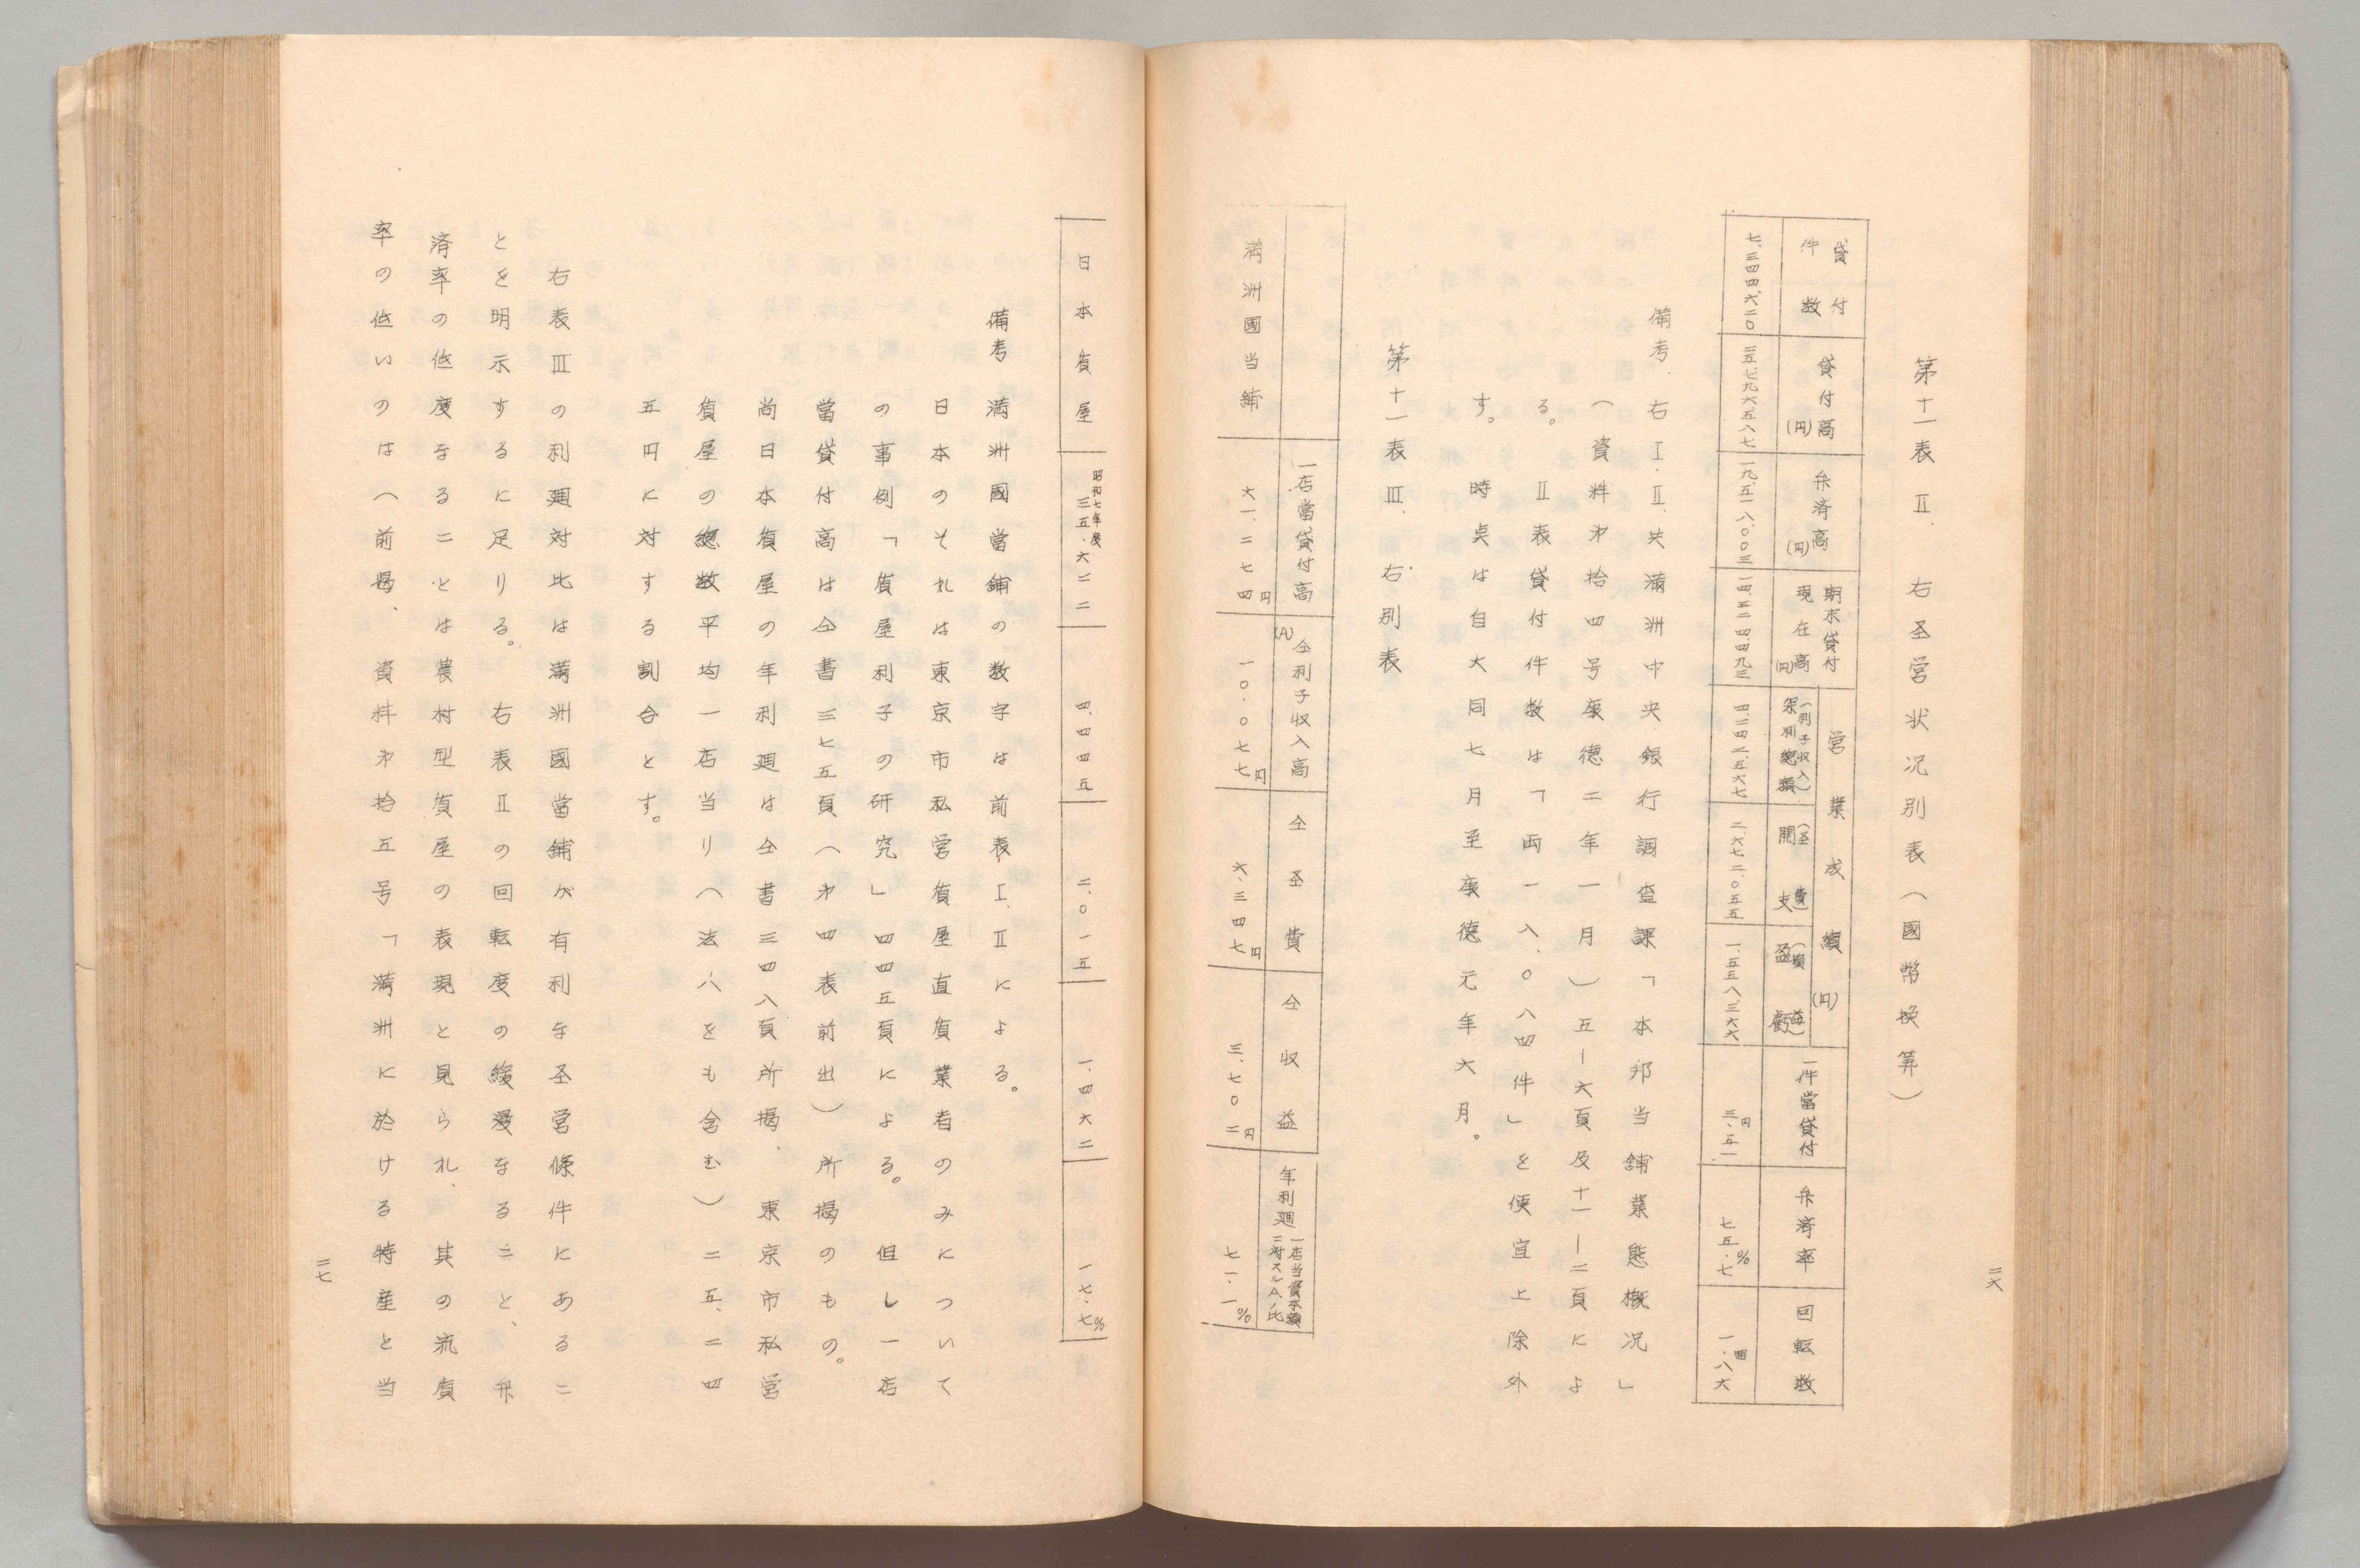 二六
第十一表 Ⅱ. 右圣営状況別表(國幣換算)
貸付件数
貸付高(円)
弁済高(円)
期末貸付現在高(円)
営業成績(円)
(利子収入)架利總額
(圣費)開支
(損益)盈虧
一件當貸付
弁済率
回転数
七.三四四.六二〇
二五.七九六.五八七
一九.五一八.〇〇三
一四.五二四.四九三
四.二四二.五六七
二.六七二.〇五五
一.五五八.三六六
三.五一円
七五.七%
一.八六回
備考. 右Ⅰ.Ⅱ共満洲中央銀行調査課「本邦当舗業態概況」
(資料第拾四号康徳二年一月)五―六頁及十一―二頁によ
る。 Ⅱ表貸付件数は「両一入.〇八四件」を便宜上除外
す。 時点は自大同七月至康徳元年六月。
第十一表Ⅲ. 右別表
一店當貸付高
(A)仝利子収入高
仝圣費
仝収益
年利廻 一店当資本額ニ対スルA.ノ比
満洲國当舗
六一.二七四円
一〇.〇七七円
六.三四七円
三.七〇二円
七一.一%
日本質屋
昭和七年度
三五.六二二
四.四四五
二.〇一五
一.四六二
一七.七%
備考 満洲國當舗の数字は前表Ⅰ.Ⅱによる。
日本のそれは東京市私営質屋直質業者のみについて
の事例「質屋利子の研究」四四五頁による。但し一店
當貸付高は仝書三七五頁(第四表前出)所掲のもの。
尚日本質屋の年利廻は仝書三四八頁所掲、東京市私営
質屋の總数平均一店当り(法人をも含む)二五.二四
五円に対する割合とす。
右表Ⅲの利廻対比は満洲國當舗が有利な圣営條件にあるこ
とを明示するに足りる。右表Ⅱの回転度の緩漫なること、弁
済率の低度なることは農村型質屋の表現と見られ、其の流質
率の低いのは(前掲、資料第拾五号「満洲に於ける特産と当
二七